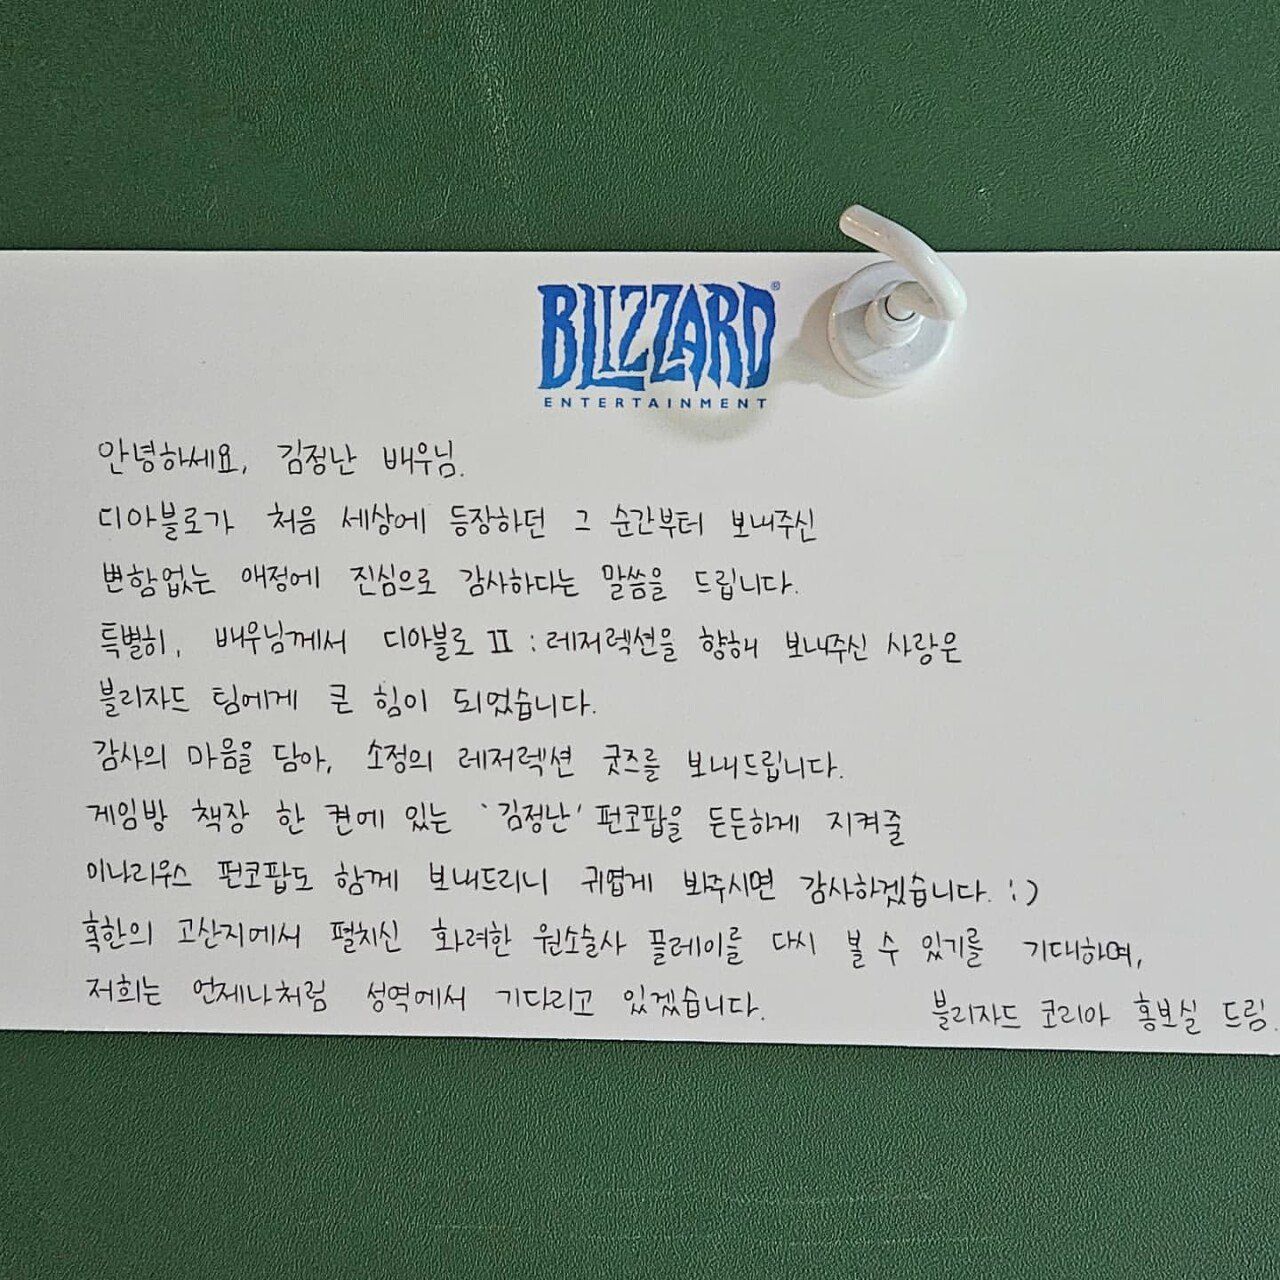 BLIZZARD®
ENTERTAINMENT
안녕하세요, 김정난 배우님.
디아블로가 처음 세상에 등장하던 그 순간부터 보내주신
변함없는 애정에 진심으로 감사하다는 말씀을 드립니다.
특별히, 배우님께서 디아블로 II : 레저렉션을 향해 보내주신 사랑은
블리자드 팀에게 큰 힘이 되었습니다.
감사의 마음을 담아, 소정의 레저렉션 굿즈를 보내드립니다.
게임방 책장 한 켠에 있는 '김정난' 펀코팝을 든든하게 지켜줄
이나리우스 펀코팝도 함께 보내드리니 귀엽게 봐주시면 감사하겠습니다. :)
혹한의 고산지에서 펼치신 화려한 원소술사 플레이를 다시 볼 수 있기를 기대하며,
저희는 언제나처럼 성역에서 기다리고 있겠습니다. 블리자드 코리아 홍보실 드림.